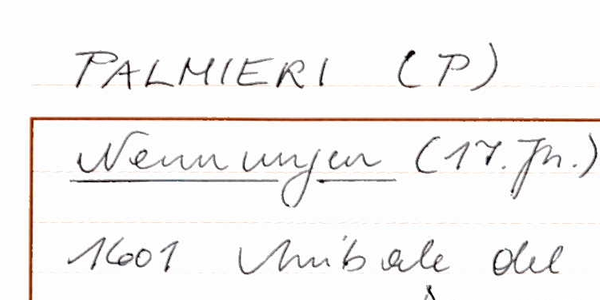 PALMIERI (P)
Nennungen (17. Jh.)
1601 Annibale del